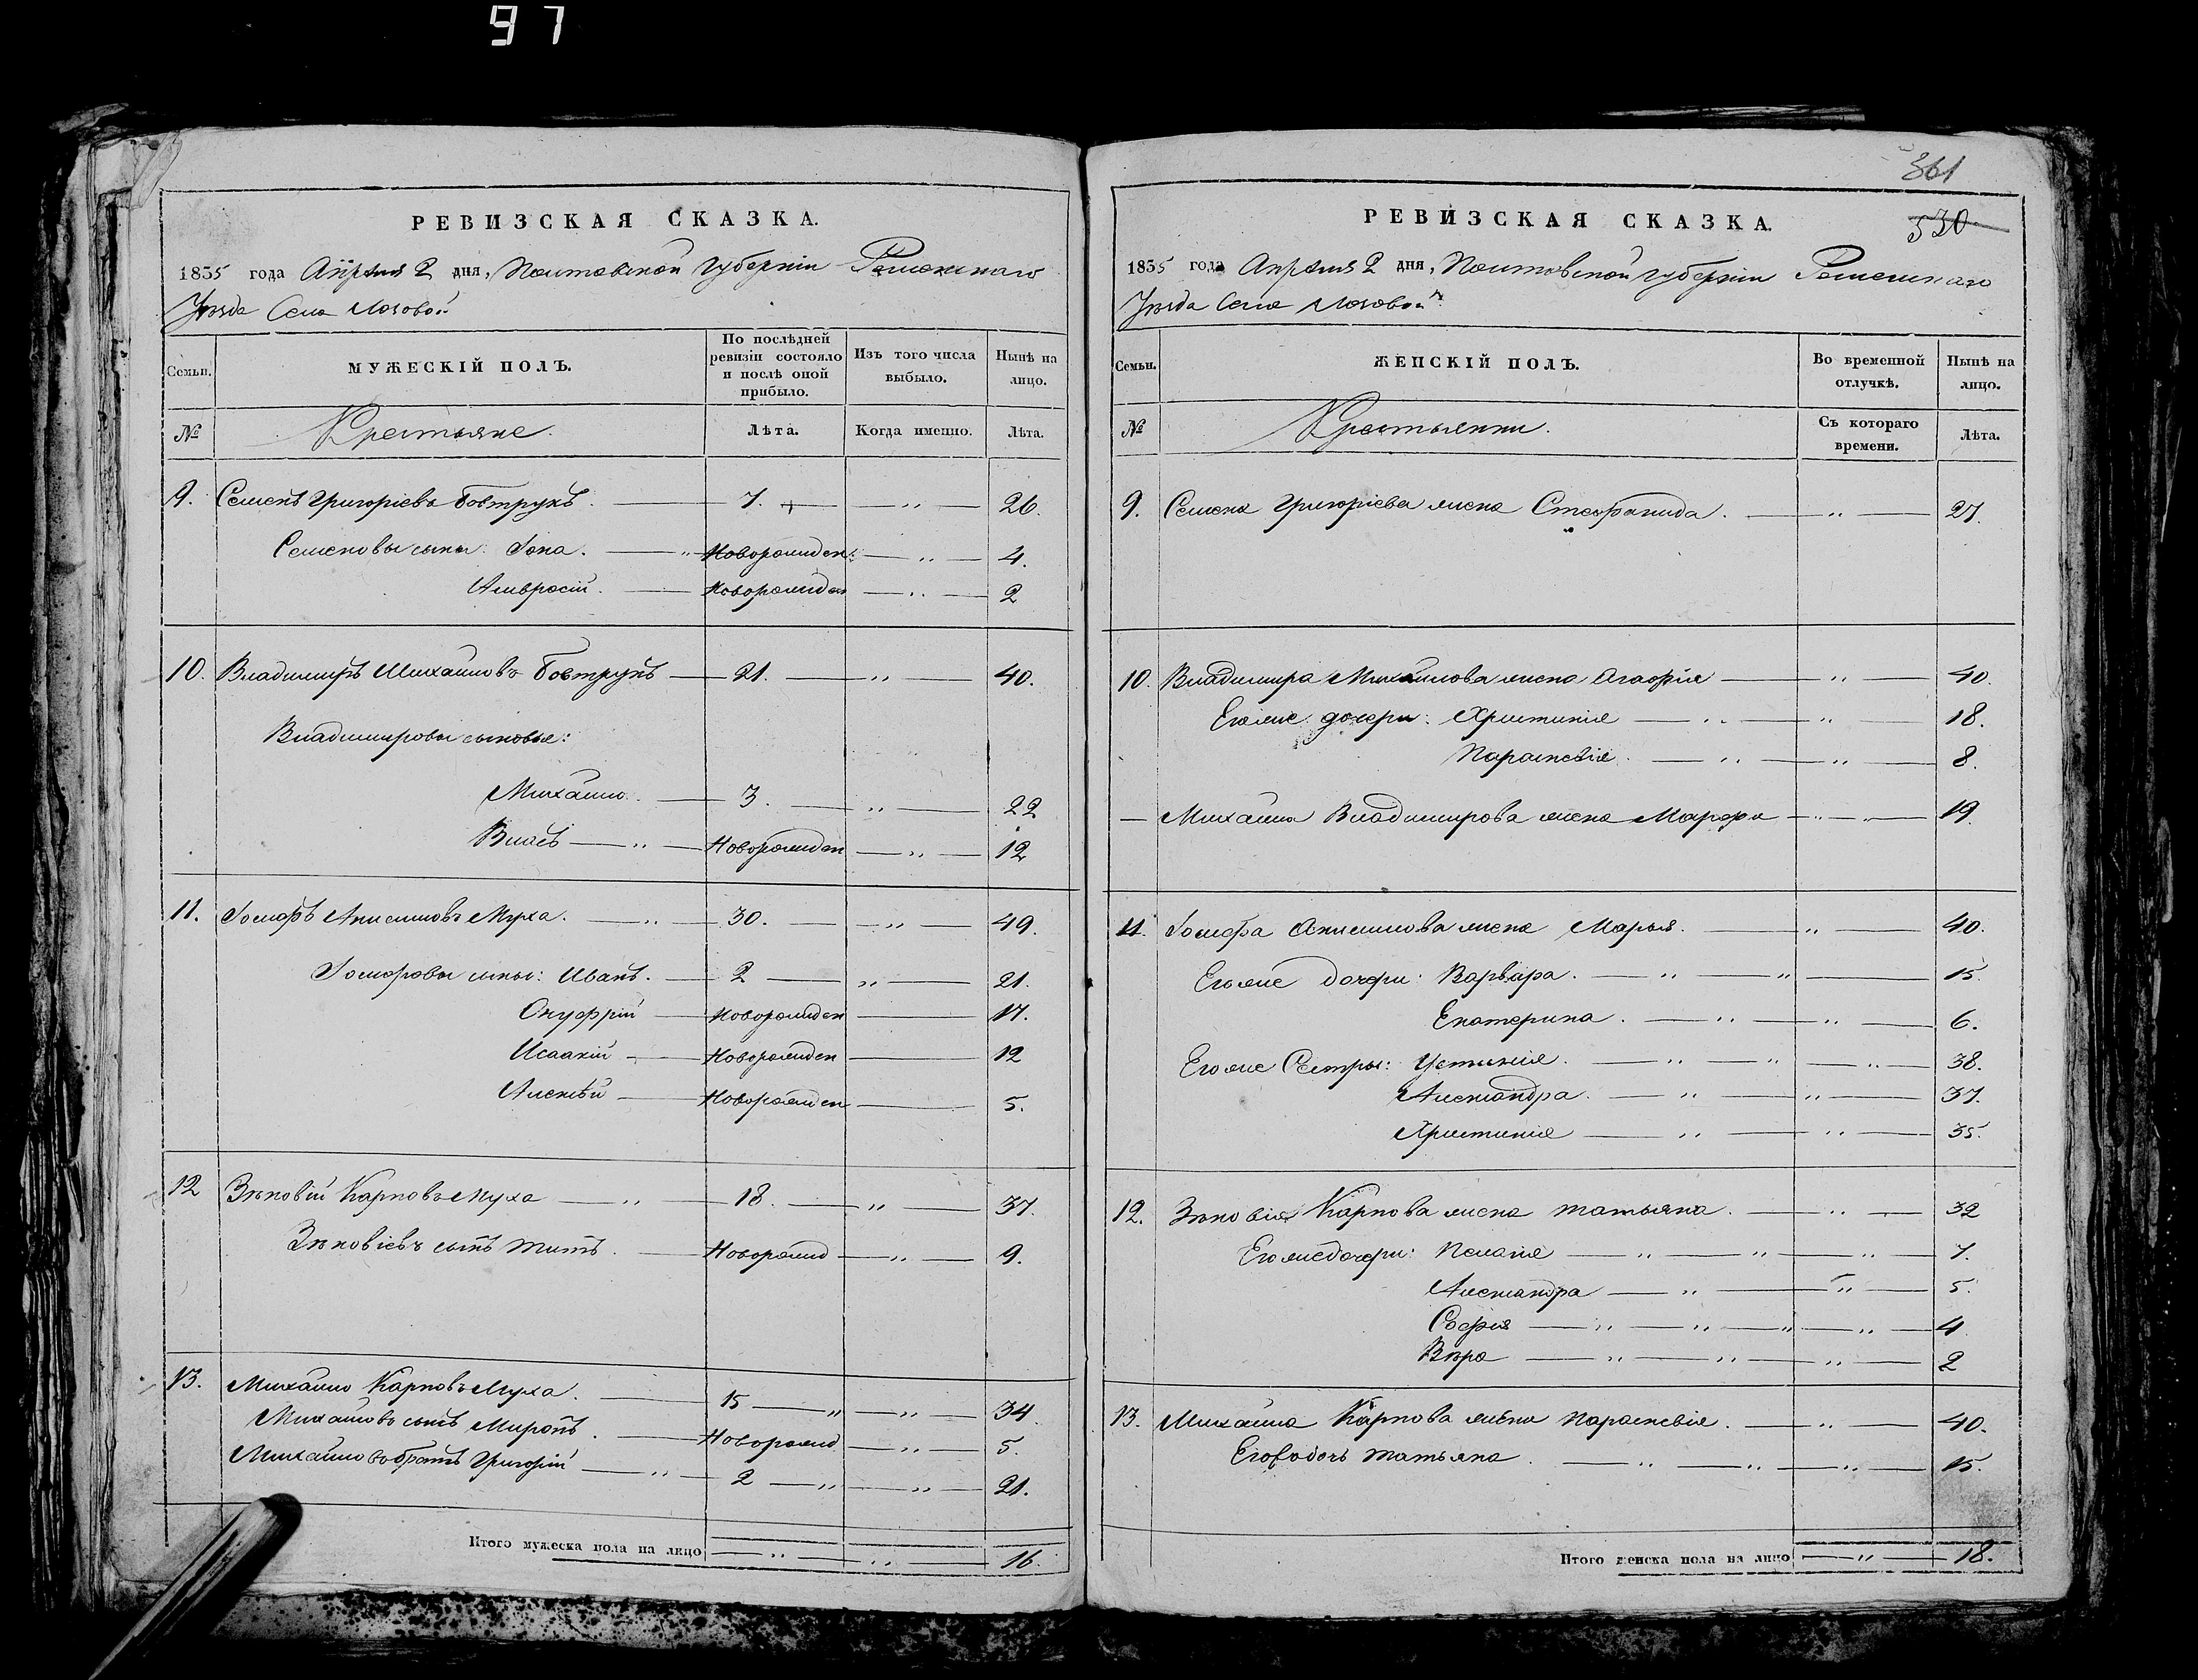 97
РЕВИЗСКАЯ СКАЗКА.
1835 года Апрѣля 2 дня, Полтавской губерніи Роменскаго
Уѣзда Села Лозовой
Семьи.
МУЖЕСКІЙ ПОЛЪ.
По послѣдней ревизіи состояло и послѣ оной прибыло.
Изъ того числа выбыло.
Нынѣ на лицо.
№ Крестьяне. Лѣта. Когда именно. Лѣта.
9. Семенъ Григорьевъ Бовтрукъ. 7. „ 26.
Семеновы сыны: Iона. „ Новорожден: „ 4.
Амвросій. Новорожден „ 2
10. Владимиръ Михайловъ Бовтрукъ 21. „ 40.
Владимировы сыновья:
Михайло. 3. „ 22
Власъ „ Новорожден „ 12
11. Іосифъ Анисимовъ Муха. „ 30. „ 49.
Іосифовы сыны: Иванъ. 2 „ 21.
Онуфрій Новорожден 17.
Исаакій Новорожден 12
Алексѣй Новорожден 5.
12 Зѣновій Карповъ Муха „ 18. „ 37.
Зѣновіевъ сынъ Титъ. Новорожд „ 9.
13. Михайло Карповъ Муха. 15 „ „ 34.
Михайловъ сынъ Миронъ. Новорожд „ 5.
Михайловъ братъ Григорій „ 2 „ „ 21.
Итого мужеска пола на лицо „ „ 16.
361
530
РЕВИЗСКАЯ СКАЗКА.
1835 года Апрѣля 2 дня, Полтавской губерніи Роменскаго
Уѣзда Села Лозовой
Семьи.
ЖЕНСКІЙ ПОЛЪ.
Во временной отлучкѣ.
Нынѣ на лицо.
№ Крестьянки. Съ котораго времени. Лѣта.
9. Семена Григорьева жена Стефанида. „ 27.
10. Владимира Михайлова жена Агафія „ 40.
Его же дочери: Христинія „ „ 18.
Параскевія. „ „ 8.
Михайла Владимирова жена Марфа „ „ 19.
11. Іосифа Анисимова жена Марья. „ 40.
Его же дочери: Варвара. „ „ 15.
Екатерина. „ „ 6.
Его же Сестры: Устинія. „ „ „ 38.
Александра. „ „ 37.
Христинія „ „ 35.
12. Зѣновія Карпова жена Татьяна. „ 32
Его же дочери: Пелагія „ „ „ 7.
Александра „ „ 5.
Софія „ „ „ „ 4
Вѣра „ „ „ 2
13. Михайла Карпова жена Параскевія. „ 40.
Его дочь Татьяна. „ „ „ 15.
Итого женска пола на лицо „ 18.